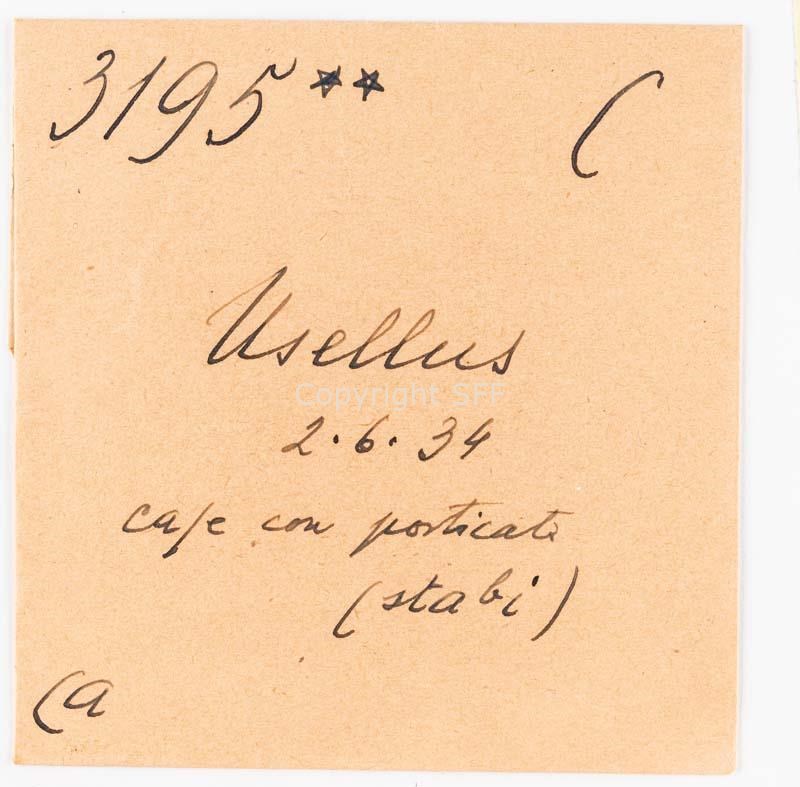 3195** C
Usellus
Copyright SFF
2.6.34
case con porticati
(stabi)
Ca